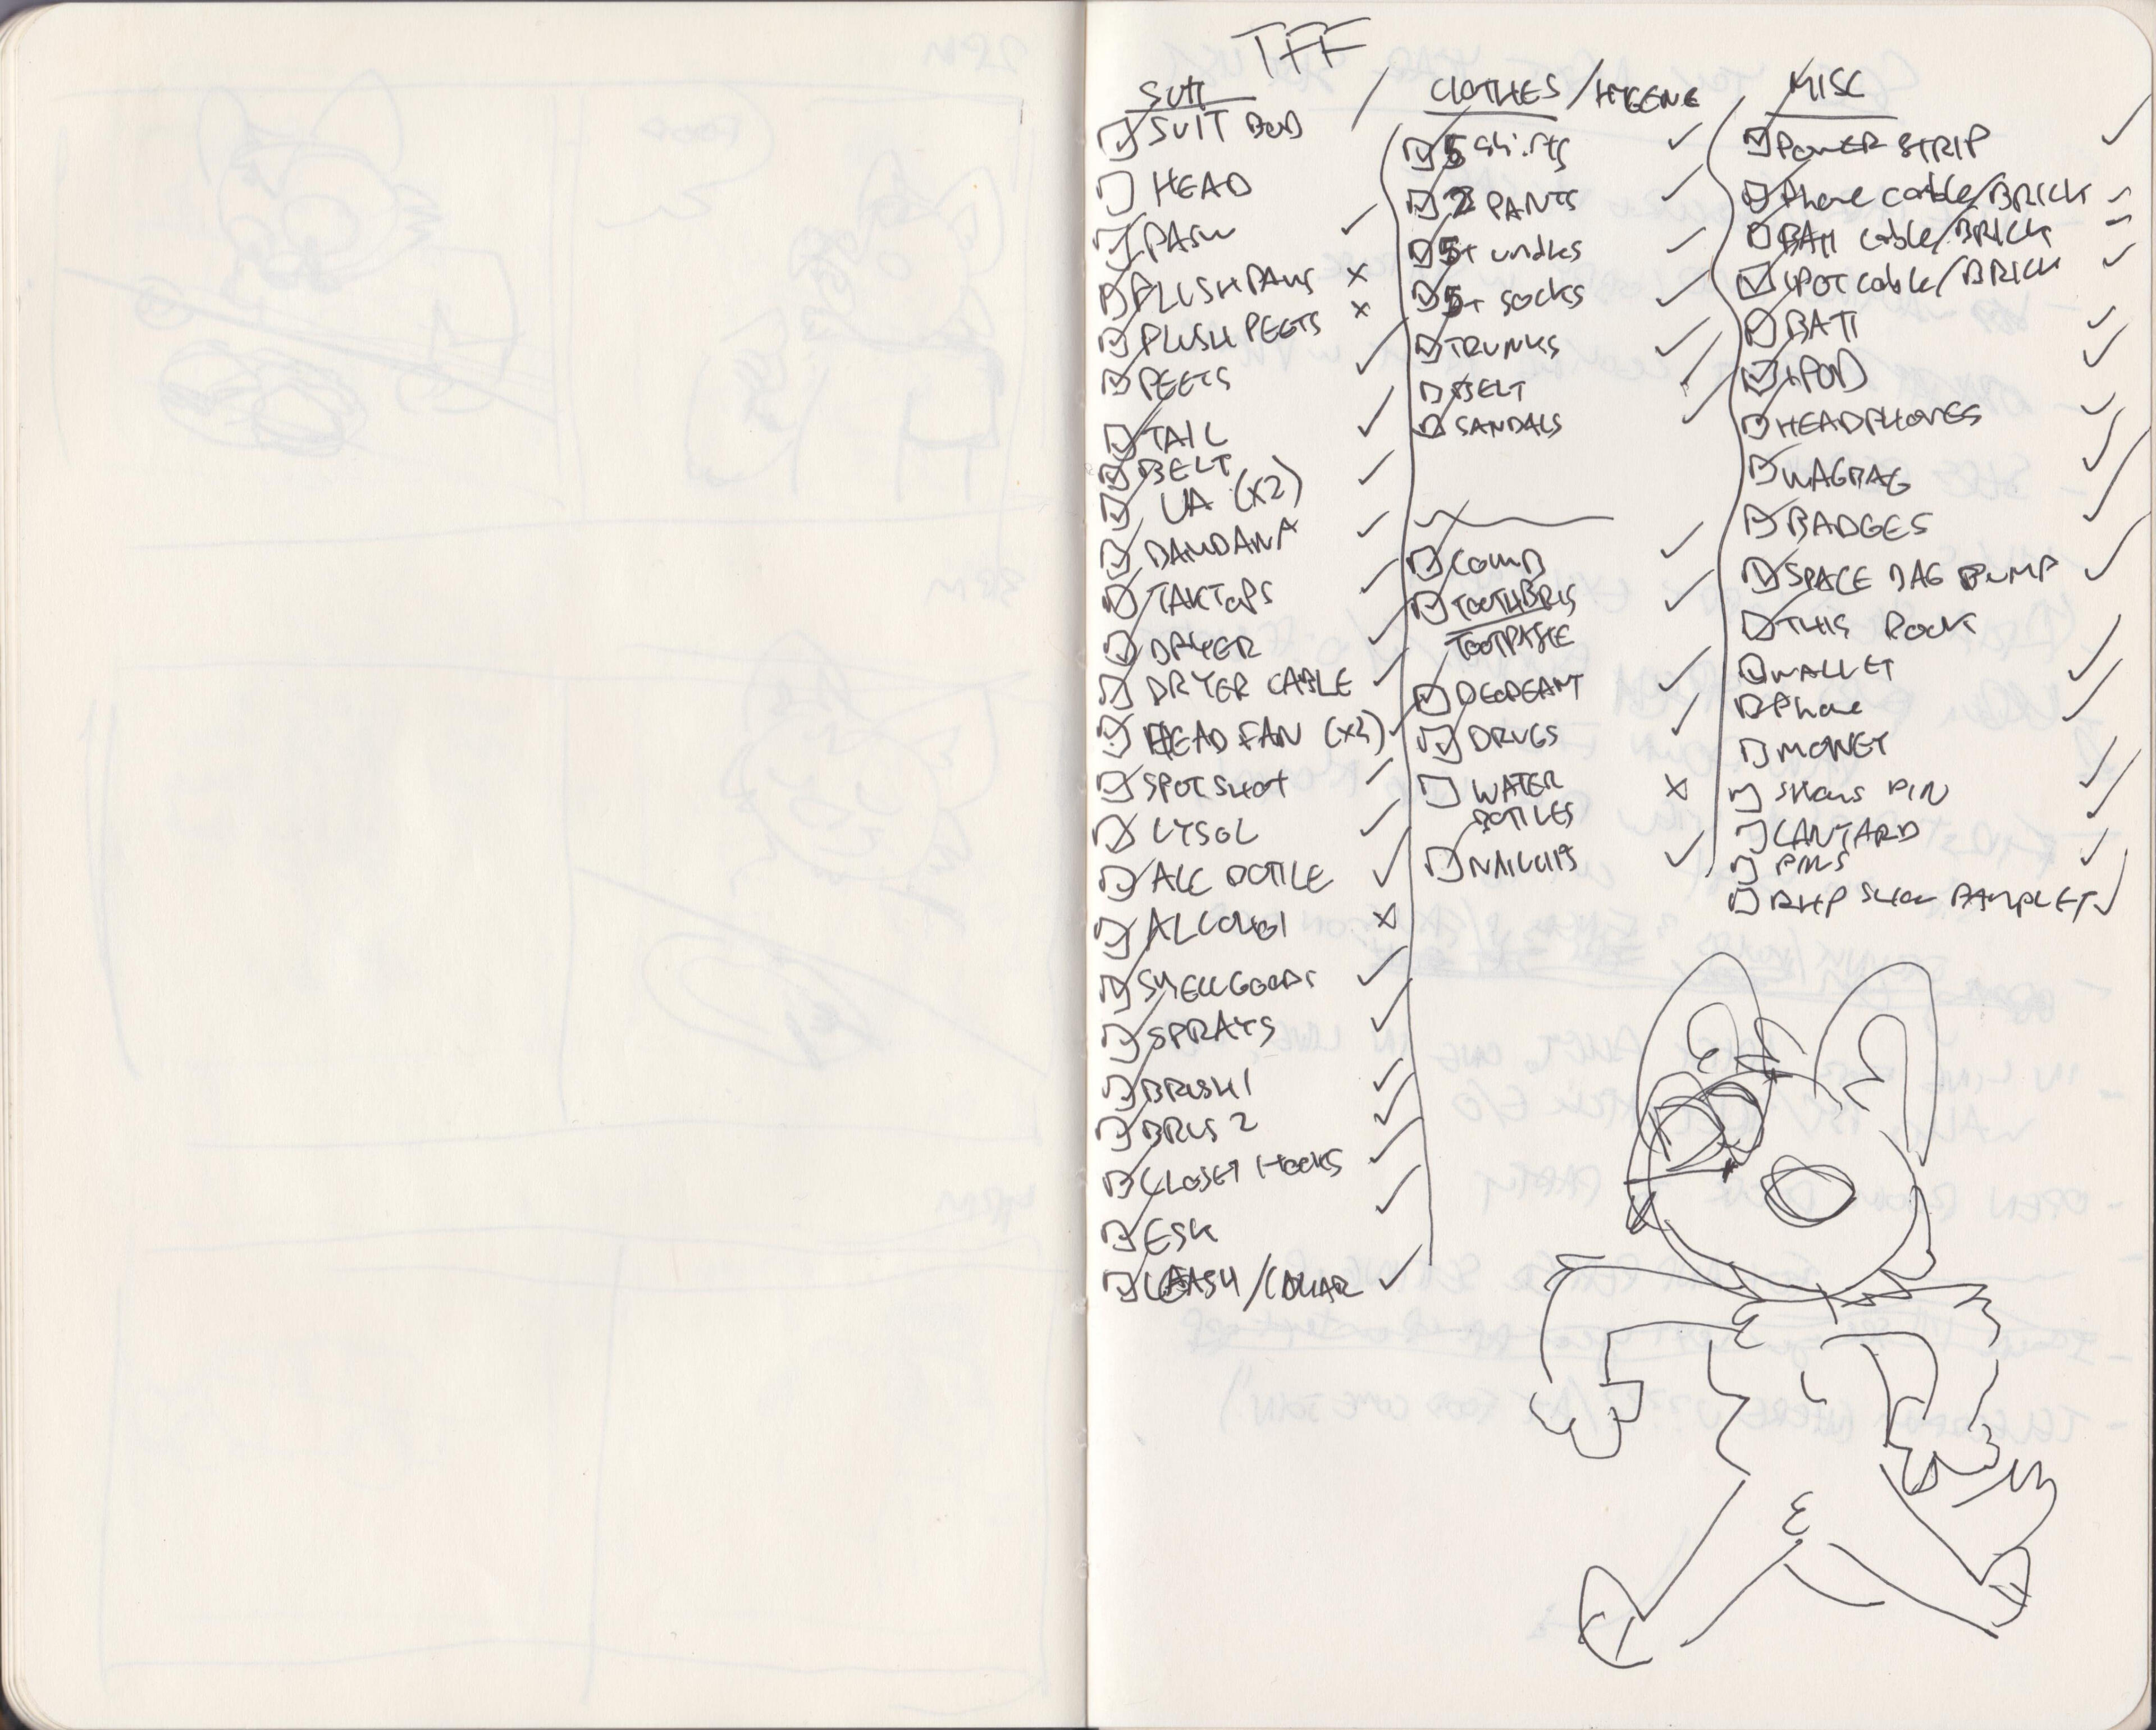 TFF
SUIT
SUIT BOD
HEAD
PAWS
PLUSH PAWS
PLUSH PEETS
PEETS
TAIL
BELT
UA (X2)
BANDANA
DRYER
DRYER CABLE
HEAD FAN (X2)
SPOT SHOT
LYSOL
ALC BOTTLE
ALCOHOl
SMELLGOODS
SPRAYS
BRUSH 1
BRUS 2
CLOSET HOOKS
ESK
LEASH / COLLAR
CLOTHES / HYGENE
5 Shirts
2 PANTS
5+ undies
5+ socks
TRUNKS
BELT
SANDALS
COMB
TOOTHBRUS
TOOTPASTE
DEODEANT
DRUGS
WATER
BOTTLES
NAILCLIPS
MISC
POWER STRIP
Phone cable/BRICK
BATT cable/BRICK
IPOT cable/BRICK
BATT
IPOD
HEADPHONES
WAGBAG
BADGES
SPACE BAG PUMP
THIS BOOK
WALLET
Phone
MONEY
PIN
LANYARD
PINS
SHOW PAMPLET